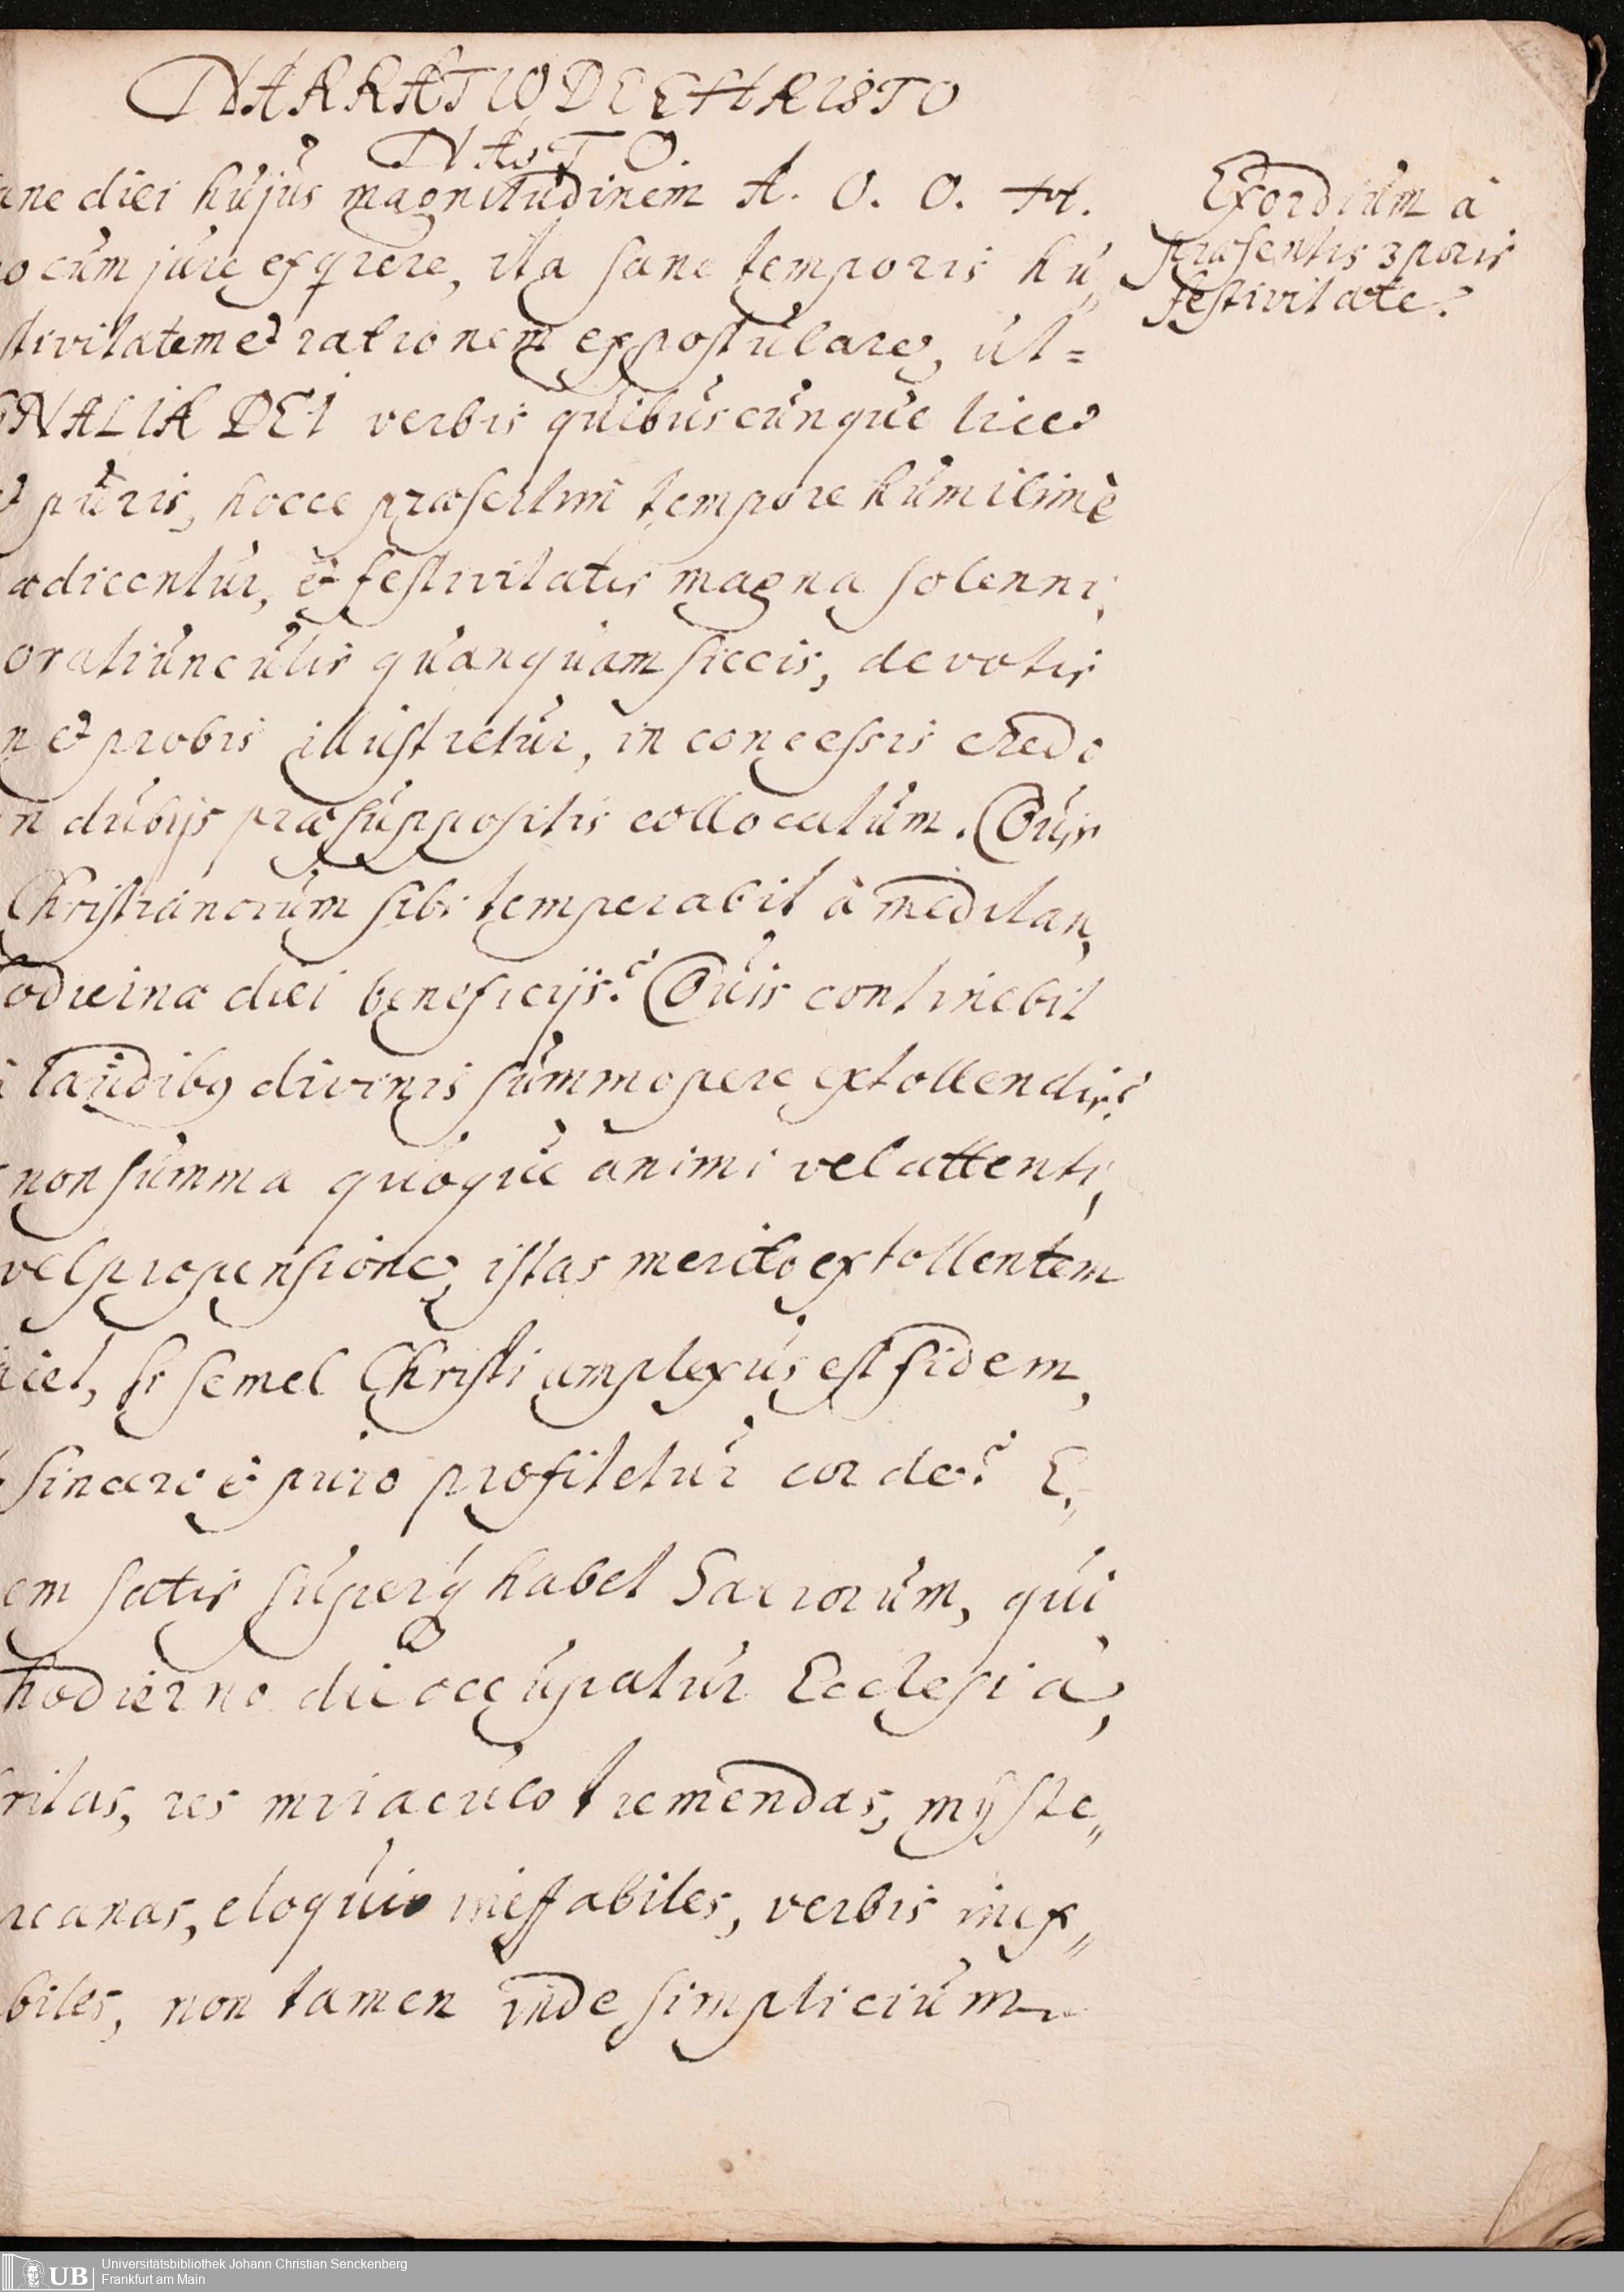 NARRATIO DE CHRISTO
NATO.
ane diei hujus magnitudinem A. O. O. H.
o cum jure exqrere, ita sane temporis hu,
stivitatem et rationem expostulare, ut=
NALIA DEI verbis quibuscunque licet
et puris, hocce præsertim tempore humilimè
ædicentur, et festivitatis magna solenni,
oratiunculis quanquam siccis, devotis
n et probis illustretur, in concessis credo
n dubijs præsuppositis collocatum. Quis
Christianorum sibi temperabit à meditan,
odieinæ diei beneficijs? Quis continebit
i laudibq divinis summopere extollendis?
non summa quoque animi vel attenti,
vel propensione, istas merito extollentem
iciet, si semel Christi amplexus est fidem,
sincere et puro profitetur corde? E,,
em satis superq habet Sacrorum, qui
hodierno die occupatur Ecclesia,
ritas, res miraculo tremendas, myste,,
rcanas, eloquio ineffabiles, verbis inex,,
biles, non tamen inde simplicium
Exordium à
præsentis 3poris
festivitate.
UB Universitätsbibliothek Johann Christian Senckenberg
Frankfurt am Main